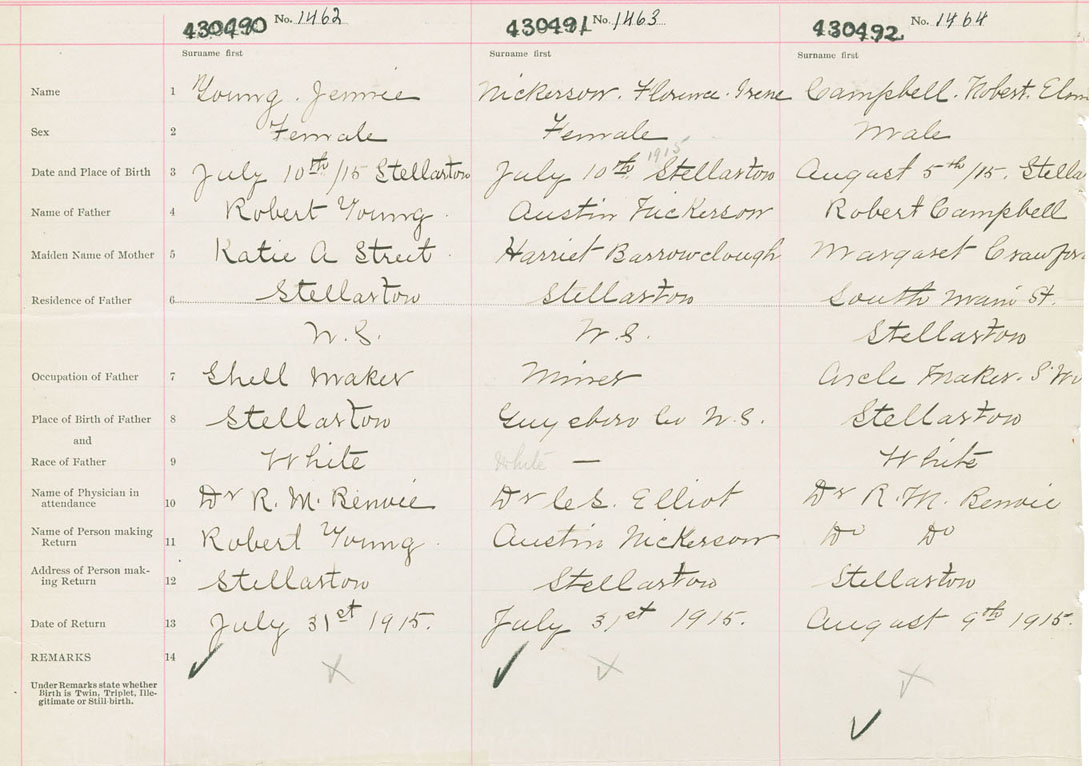 430490 No. 1462 430491 No. 1463 430492 No. 1464
Surname first Surname first Surname first
Name 1 Young. Jennie Nickerson. Florence. Irene Campbell. Robert.
Sex 2 Female Female Male
1915
Date and Place of Birth 3 July 10th/15 Stellarton July 10th Stellarton August 5th/15. Stella
Name of Father 4 Robert Young. Austin Nickerson Robert Campbell
Maiden Name of Mother 5 Katie A Street. Harriet Barrowclough Margaret Crawfor
Residence of Father 6 Stellarton Stellarton South Main St.
N.S. N.S. Stellarton
Occupation of Father 7 Shell Maker Miner Axle Maker.
Place of Birth of Father 8 Stellarton Guysboro Co N.S. Stellarton
and
Race of Father 9 White White — White
Name of Physician in
attendance 10 Dr R. M. Benvie Dr Elliot Dr R. M. Benvie
Name of Person making
Return 11 Robert Young. Austin Nickerson Do Do
Address of Person mak-
ing Return 12 Stellarton Stellarton Stellarton
Date of Return 13 July 31st 1915. July 31st 1915. August 9th 1915.
REMARKS 14
Under Remarks state whether
Birth is Twin, Triplet, Ille-
gitimate or Still-birth.